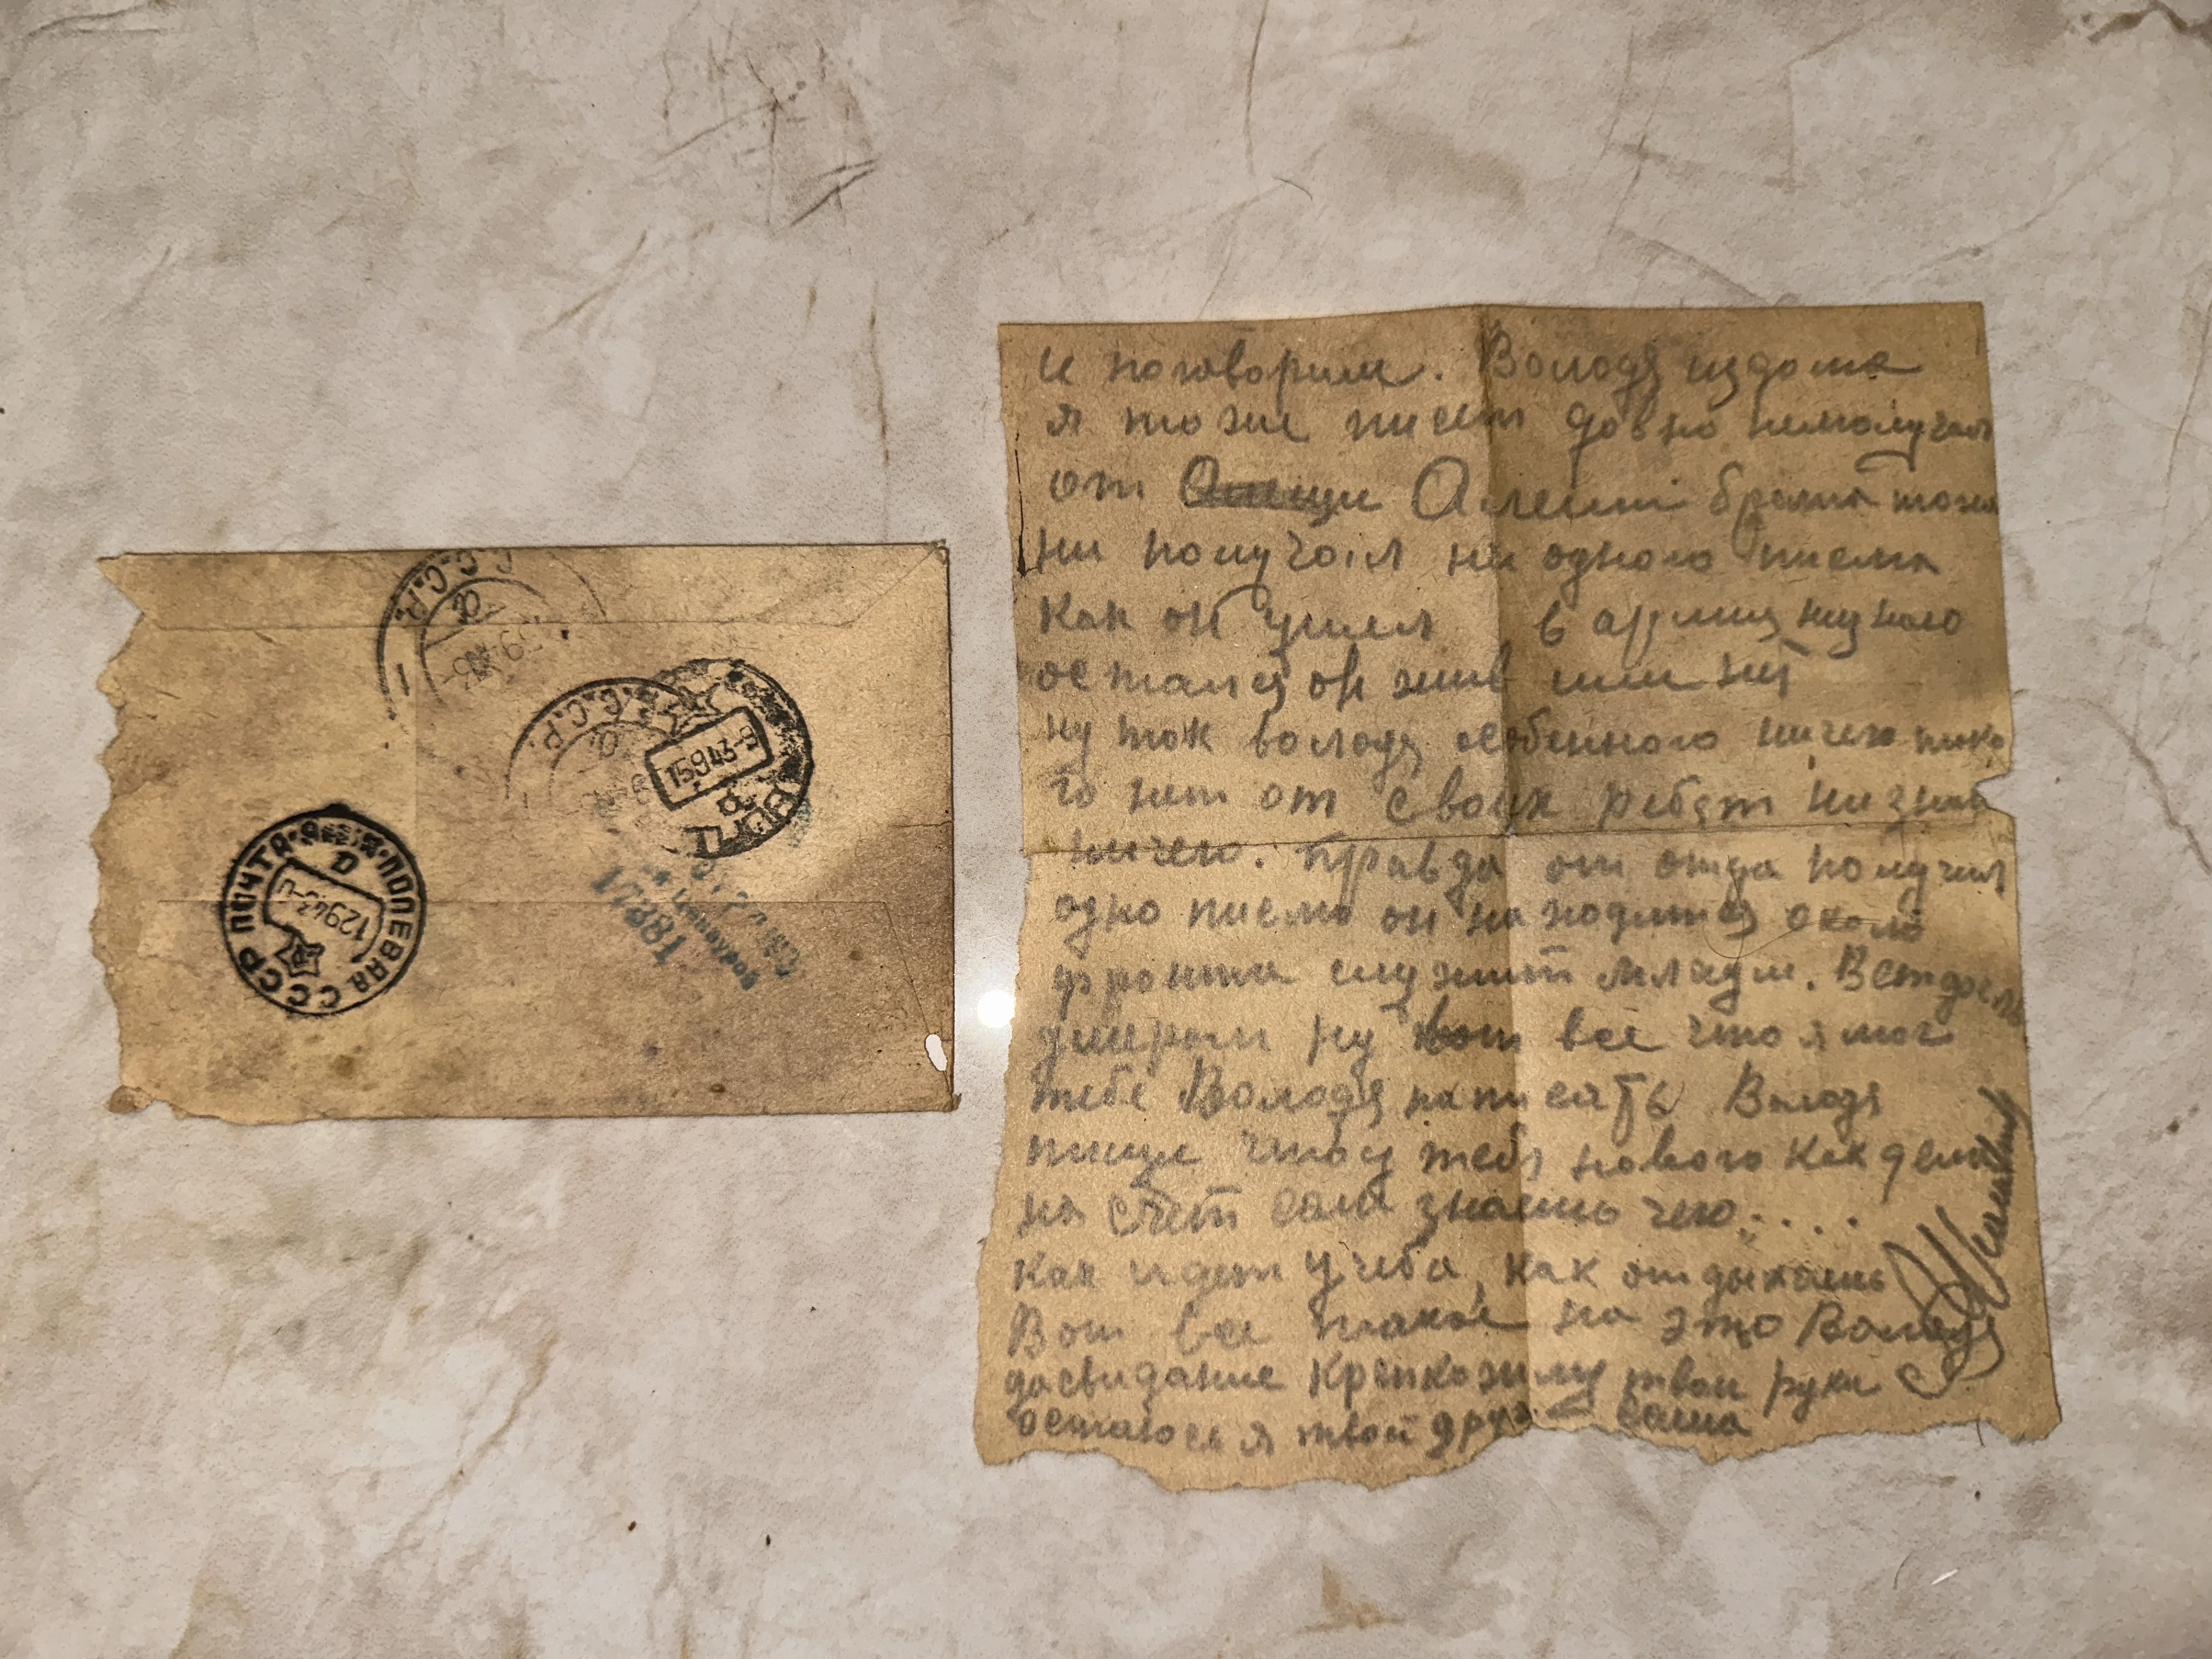 С.С.С.Р.
С.С.Р.
15943-9
СССР ПОЧТА ПОЛЕВАЯ
12943
18821
и поговорим. Володя издома
я тоже писем довно неполучал
от Алеши брата тоже
ни получал ни одного писма
как он ушел в армию незнаю
остался он жив или нет
ну так володя особенного ничего тако
го нет от своих ребят незнаю
ничего. Правда от отца получил
одно писмо он находится около
фронта служит
ну вот все что я мог
тебе Володя написать Володя
пиши что у тебя нового как дела
на счет сам знаеш чего.....
как идет учеба, как отдыхаеш
Вот все такое на это Володя
досвидание крепко жму твои руки
остаюся я твой друг саша